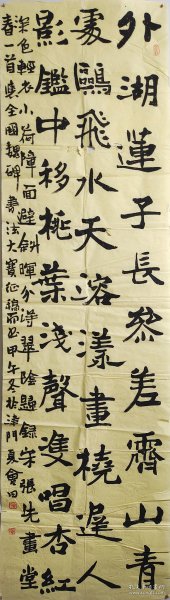 外湖蓮子長叅差霽山青
處鷗飛水天溶漾畫橈遲人
影鑑中移桃葉淺聲雙唱杏紅
深色輕衣小荷障面避斜暉分得翠陰歸錄宋張先畫堂
春一首應全國魏碑書法大賽征稿而書甲午冬於津門夏會田